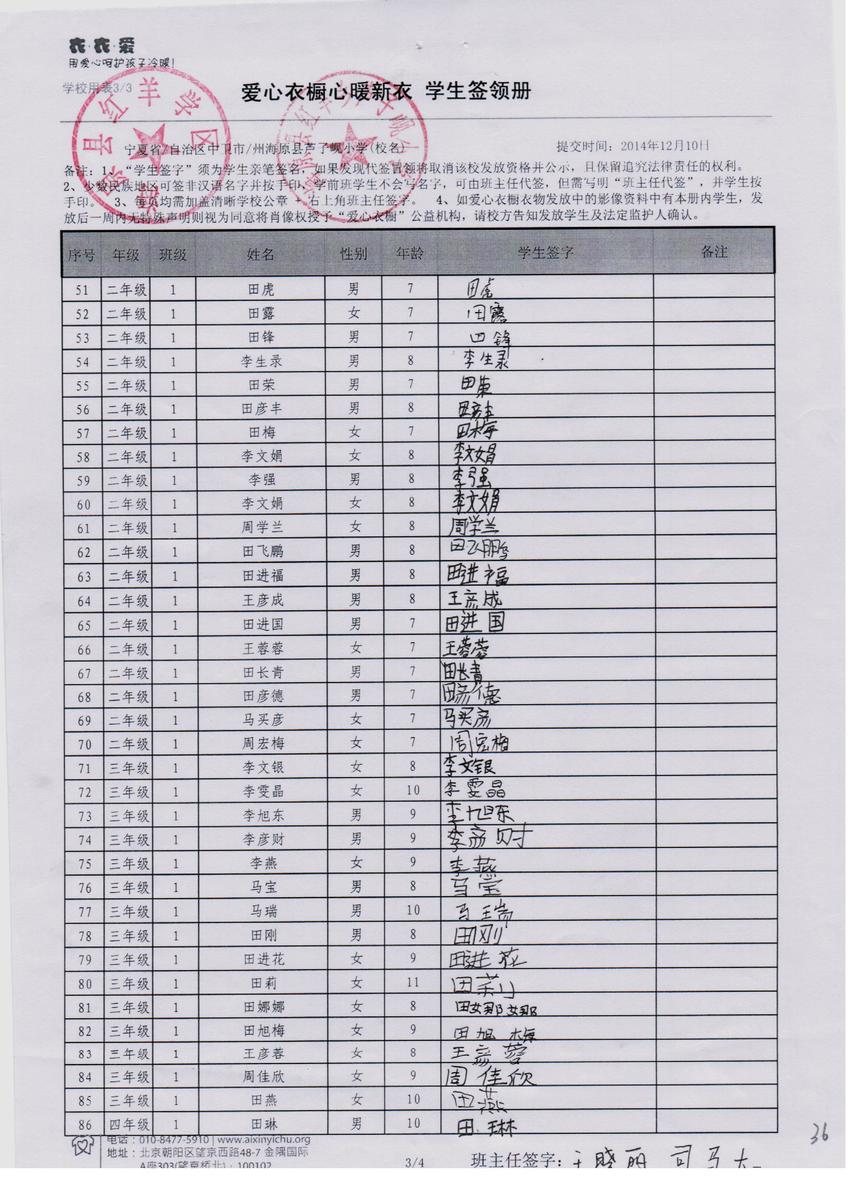 衣·衣·爱
用爱心呵护孩子冷暖!
学校用表3/3
爱心衣橱心暖新衣 学生签领册
宁夏省/自治区中卫市/州海原县芦子岘小学(校名) 提交时间：2014年12月10日
备注：1、“学生签字”须为学生亲笔签名，如果发现代签冒领将取消该校发放资格并公示，且保留追究法律责任的权利。
2、少数民族地区可签非汉语名字并按手印，学前班学生不会写名字，可由班主任代签，但需写明“班主任代签”，并学生按
手印。 3、每页均需加盖清晰学校公章，右上角班主任签字。 4、如爱心衣橱衣物发放中的影像资料中有本册内学生，发
放后一周内无特殊声明则视为同意将肖像权授予“爱心衣橱”公益机构，请校方告知发放学生及法定监护人确认。
序号 年级 班级 姓名 性别 年龄 学生签字 备注
51 二年级 1 田虎 男 7 田虎
52 二年级 1 田露 女 7 田露
53 二年级 1 田锋 男 7 田锋
54 二年级 1 李生录 男 8 李生录
55 二年级 1 田荣 男 7 田荣
56 二年级 1 田彦丰 男 8 田彦丰
57 二年级 1 田梅 女 7 田梅
58 二年级 1 李文娟 女 8 李文娟
59 二年级 1 李强 男 8 李强
60 二年级 1 李文娟 女 8 李文娟
61 二年级 1 周学兰 女 8 周学兰
62 二年级 1 田飞鹏 男 8 田飞鹏
63 二年级 1 田进福 男 8 田进福
64 二年级 1 王彦成 男 8 王彦成
65 二年级 1 田进国 男 7 田进国
66 二年级 1 王蓉蓉 女 7 王蓉蓉
67 二年级 1 田长青 男 7 田长青
68 二年级 1 田彦德 男 7 田彦德
69 二年级 1 马买彦 女 7 马买彦
70 二年级 1 周宏梅 女 7 周宏梅
71 三年级 1 李文银 女 8 李文银
72 三年级 1 李雯晶 女 10 李雯晶
73 三年级 1 李旭东 男 9 李旭东
74 三年级 1 李彦财 男 9 李彦财
75 三年级 1 李燕 女 9 李燕
76 三年级 1 马宝 男 8 马宝
77 三年级 1 马瑞 男 10 马瑞
78 三年级 1 田刚 男 8 田刚
79 三年级 1 田进花 女 9 田进花
80 三年级 1 田莉 女 11 田莉
81 三年级 1 田娜娜 女 8 田娜娜
82 三年级 1 田旭梅 女 9 田旭梅
83 三年级 1 王彦蓉 女 8 王彦蓉
84 三年级 1 周佳欣 女 9 周佳欣
85 三年级 1 田燕 女 10 田燕
86 四年级 1 田琳 男 10 田琳
电话：010-8477-5910 | www.aixinyichu.org
地址：北京朝阳区望京西路48-7 金隅国际
A座303(望京桥北) · 100102
3/4
班主任签字：王晓丽 司马
36